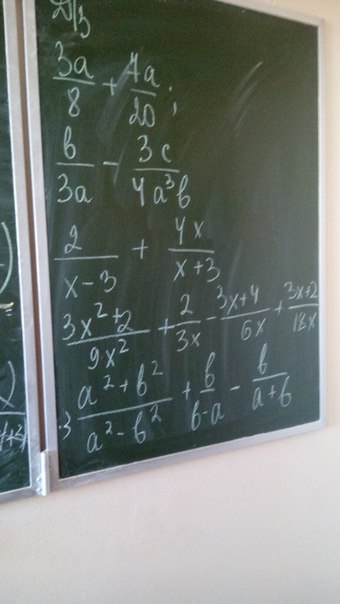 Д/з
3a/8 + 7a/20 ;
b/3a - 3c/4a³b
2/(x-3) + 4x/(x+3)
(3x²+2)/9x² + 2/3x - (3x+4)/6x + (3x+2)/18x
(a²+b²)/(a²-b²) + b/(b-a) - b/(a+b)